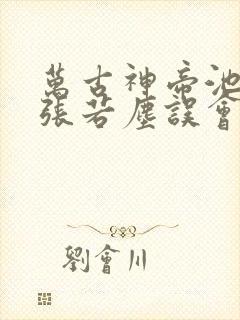 萬古神帝池
張若塵誤會
劉會川